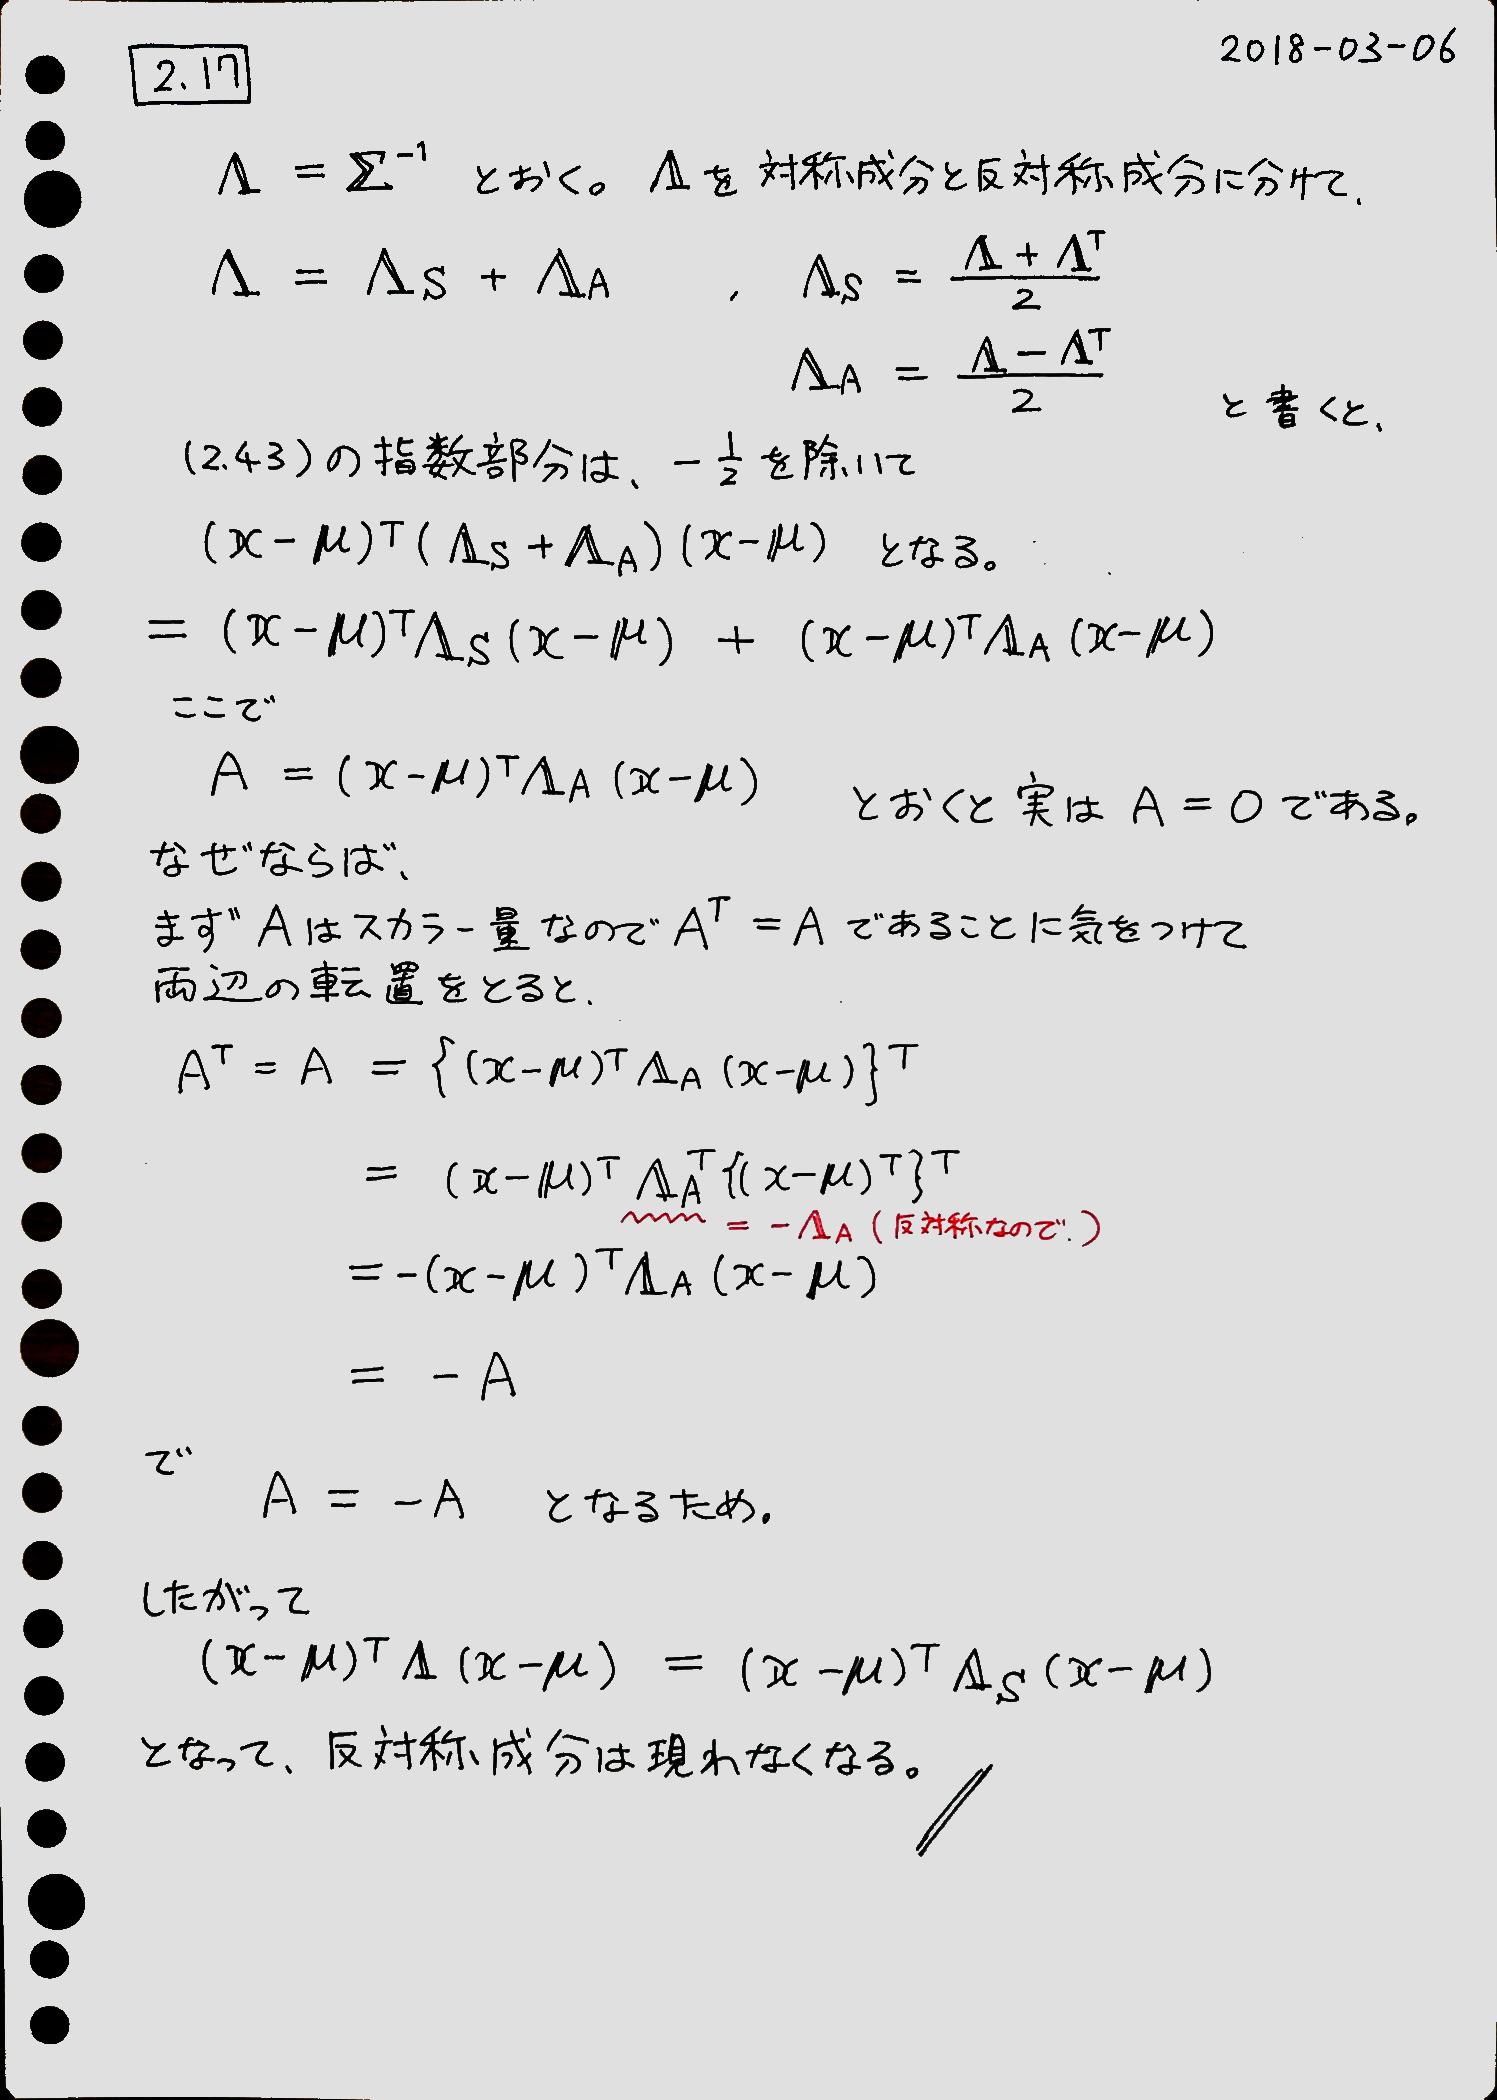 2018-03-06
2.17
Λ = Σ⁻¹ とおく。Λを対称成分と反対称成分に分けて、
Λ = Λ_S + Λ_A , Λ_S = (Λ + Λ^T)/2
Λ_A = (Λ - Λ^T)/2 と書くと、
(2.43)の指数部分は、-1/2を除いて
(x-μ)^T(Λ_S+Λ_A)(x-μ) となる。
= (x-μ)^TΛ_S(x-μ) + (x-μ)^TΛ_A(x-μ)
ここで
A = (x-μ)^TΛ_A(x-μ) とおくと実は A = 0 である。
なぜならば、
まずAはスカラー量なのでA^T = A であることに気をつけて
両辺の転置をとると、
A^T = A = {(x-μ)^TΛ_A(x-μ)}^T
= (x-μ)^TΛ_A^T{(x-μ)^T}^T
= -Λ_A (反対称なので.)
= -(x-μ)^TΛ_A(x-μ)
= -A
で
A = -A となるため。
したがって
(x-μ)^TΛ(x-μ) = (x-μ)^TΛ_S(x-μ)
となって、反対称成分は現れなくなる。